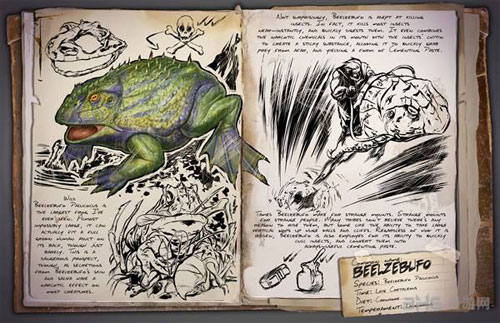 Wild
Beelzebufo Palucocus is
the largest frog I've
ever seen. Almost
impossibly large, it can
actually fit a full
grown human adult on
its back, though just
barely. This is a
dangerous prospect,
though, as secretions
from Beelzebufo's skin
and saliva have a
narcotic effect on
most creatures.
Not surprisingly, Beelzebufo is adept at killing
insects. In fact, it kills most insects
near-instantly, and quickly digests them. It even combines
the narcotic chemicals in its mouth with the insect's chitin
to create a sticky substance, allowing it to quickly grab
prey from afar, and yielding a form of Cementing Paste.
Tamed Beelzebufo make for strange mounts. Strange mounts
for strange people. Many tribes don't believe there's any
reason to ride them, but some like the ability to take large
vertical hops up huge walls and cliffs. Regardless of how it is
ridden, Beelzebufo is also employed for its ability to quickly
cull insects, and convert them into
Common Name
BEELZEBUFO
Species: Beelzebufo Palucocus
Time: Late Cretaceous
Diet: Carnivore
Temperament: